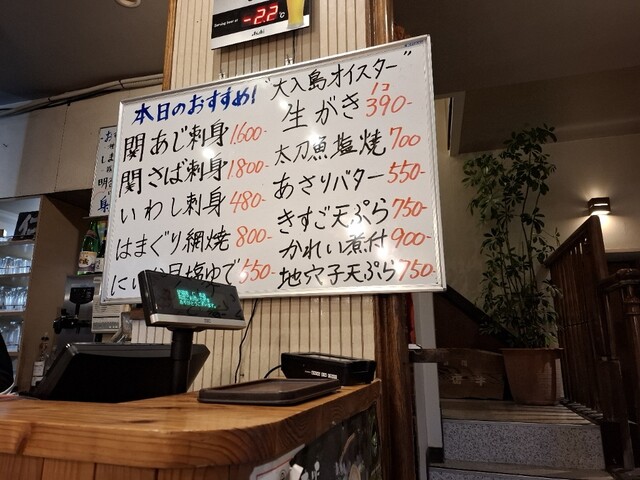 -2.2℃
Asahi
本日のおすすめ!
関あじ刺身 1.600-
関さば刺身 1.800-
いわし刺身 480-
はまぐり網焼 800-
塩ゆで 550-
"大入島オイスター"
生がき 1コ 390-
太刀魚塩焼 700
あさりバター 550-
きすご天ぷら 750-
かれい煮付 900-
地穴子天ぷら 750-